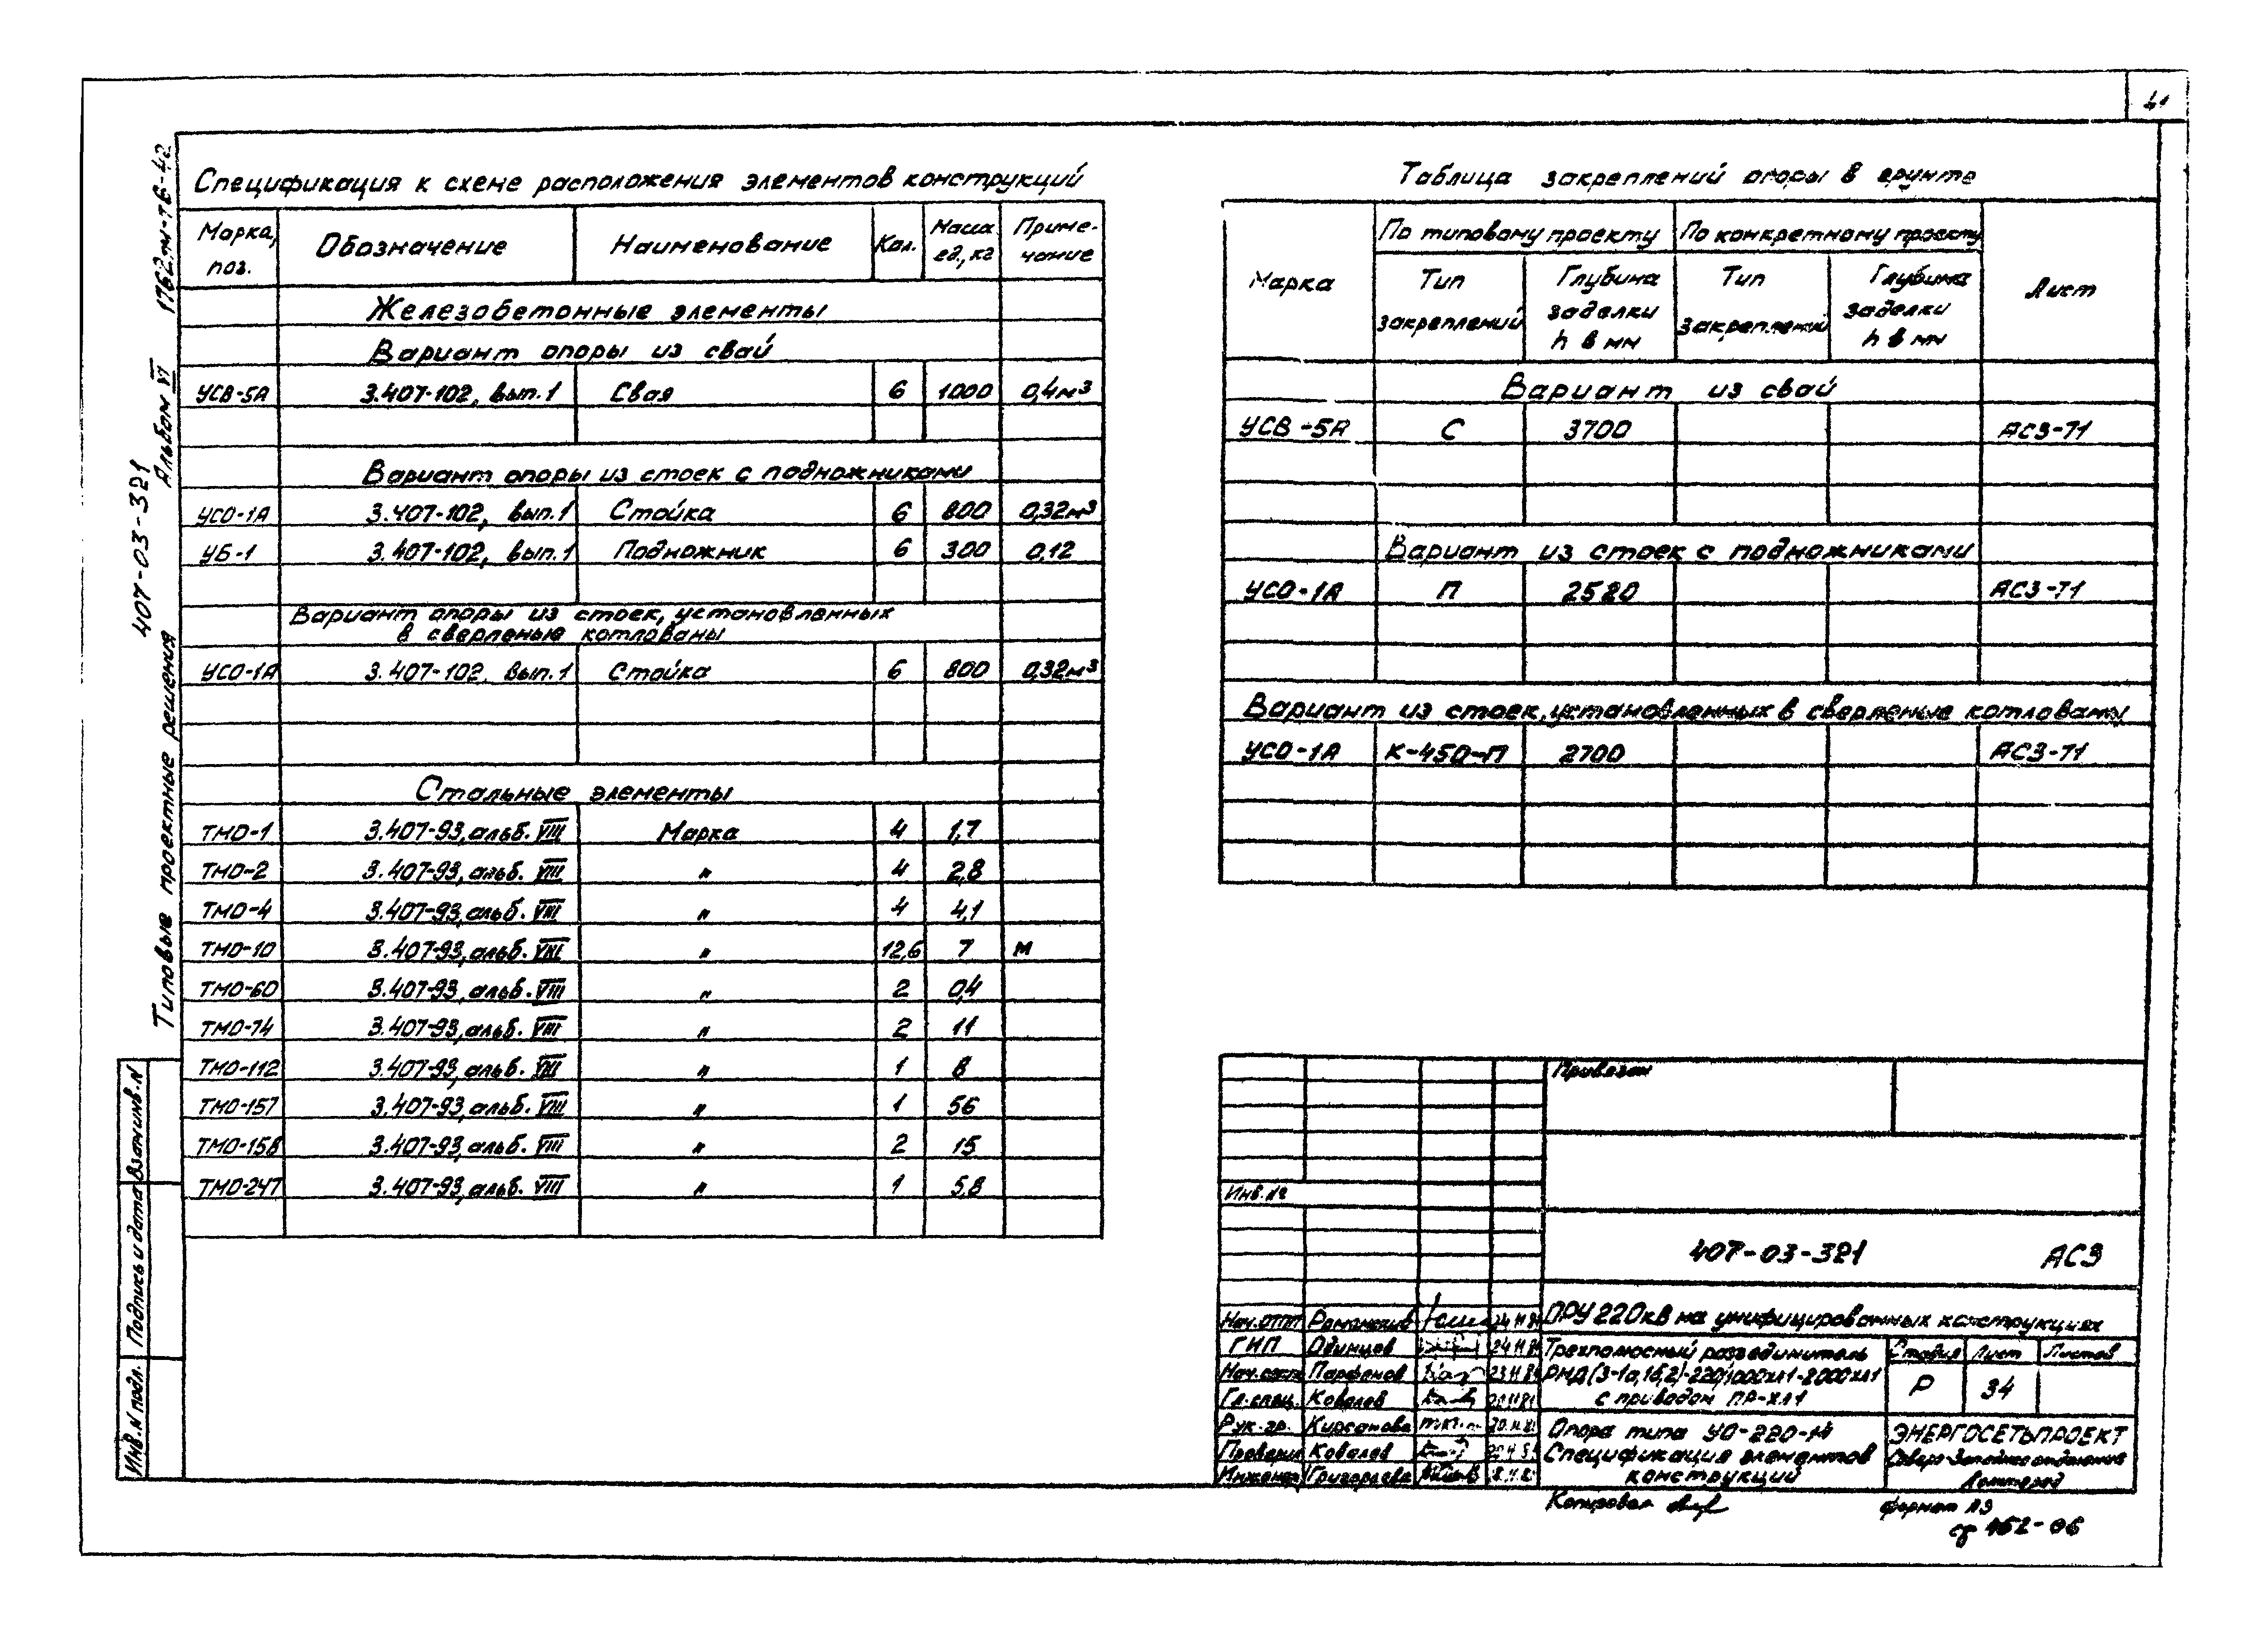 41
1762тм-т6-42
Альбом VI
407-03-321
Типовые проектные решения
Взам.инв.N
Подпись и дата
Инв.N подл.
Спецификация к схеме расположения элементов конструкций
Марка, поз. Обозначение Наименование Кол. Масса ед., кг Приме-чание
Железобетонные элементы
Вариант опоры из свай
УСВ-5А 3.407-102, вып.1 Свая 6 1000 0,4м³
Вариант опоры из стоек с подножниками
УСО-1А 3.407-102, вып.1 Стойка 6 800 0,32м³
УБ-1 3.407-102, вып.1 Подножник 6 300 0,12
Вариант опоры из стоек, установленных
в сверленые котлованы
УСО-1А 3.407-102, вып.1 Стойка 6 800 0,32м³
Стальные элементы
ТМО-1 3.407-93, альб. VIII Марка 4 1,7
ТМО-2 3.407-93, альб. VIII " 4 2,8
ТМО-4 3.407-93, альб. VIII " 4 4,1
ТМО-10 3.407-93, альб. VIII " 12,6 7 м
ТМО-60 3.407-93, альб. VIII " 2 0,4
ТМО-74 3.407-93, альб. VIII " 2 11
ТМО-112 3.407-93, альб. VIII " 1 8
ТМО-157 3.407-93, альб. VIII " 1 56
ТМО-158 3.407-93, альб. VIII " 2 15
ТМО-247 3.407-93, альб. VIII " 1 5,8
Таблица закреплений опоры в грунте
Марка По типовому проекту По конкретному проекту Лист
Тип закреплений Глубина заделки h в мм Тип закреплений Глубина заделки h в мм
Вариант из свай
УСВ-5А С 3700 АС3-71
Вариант из стоек с подножниками
УСО-1А П 2520 АС3-71
Вариант из стоек, установленных в сверленые котлованы
УСО-1А К-450-П 2700 АС3-71
Привязан
Инв.№
407-03-321 АС3
Нач.ОТП Романский
ОРУ 220кВ на унифицированных конструкциях
ГИП Одинцов
Парфенов
Гл.спец. Ковалев
Рук.гр. Кирсанова
Проверил Ковалев
Инженер Григорьева
Трехполюсный разъединитель
РНД(З-1а,1б,2)-220/1000ХЛ1-2000ХЛ1
с приводом ПР-ХЛ1
Стадия Лист Листов
Р 34
Опора типа УО-220-14
Спецификация элементов
конструкций
ЭНЕРГОСЕТЬПРОЕКТ
Северо-Западное отделение
Ленинград
Копировал
формат А3